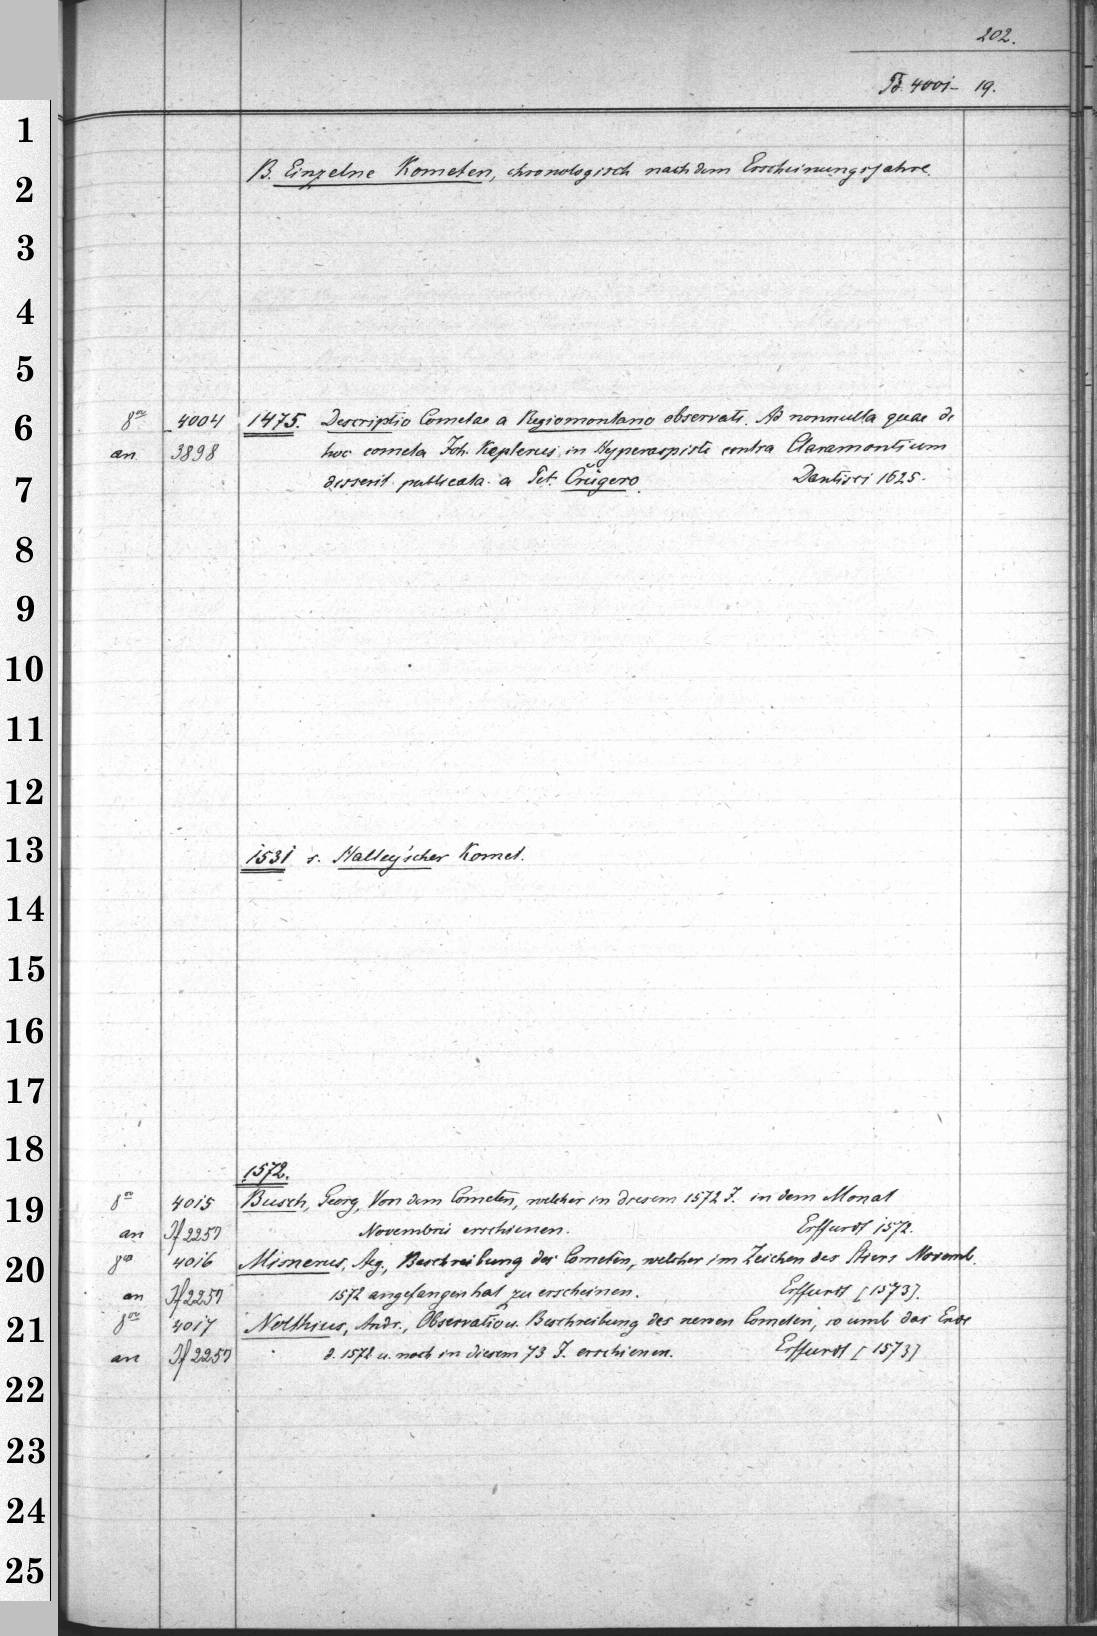 202.
4001- 19.
1
B. Einzelne Kometen, chronologisch nach dem Erscheinungsjahre.
2
3
4
5
8vo 4004 1475. Descriptio Cometae a Regiomontano observati. Ad nonnulla quae de
6
an 3898 hoc cometa Joh. Keplerus in Hyperaspiste contra Claramontium
disserit publicata a Pet. Crügero. Dantisci 1625.
7
8
9
10
11
12
13 1531 s. Halley'scher Komet.
14
15
16
17
18
1572.
8vo 4015 Busch, Georg, Von dem Cometen, welcher in diesem 1572 J. in dem Monat
19
an Jf 2257 Novembris erschienen. Erffurdt 1572.
8vo 4016 Misnerus, Aeg., Beschreibung des Cometen, welcher im Zeichen des Stiers Novemb.
20
an Jf 2257 1572 angefangen hat zu erscheinen. Erffurdt [1573].
8vo 4017 Nolthius, Andr., Observatio u. Beschreibung des newen Cometen, so umb das Ende
21
an Jf 2257 d. 1572 u. noch in diesem 73 J. erschienen. Erffurdt [1573]
22
23
24
25